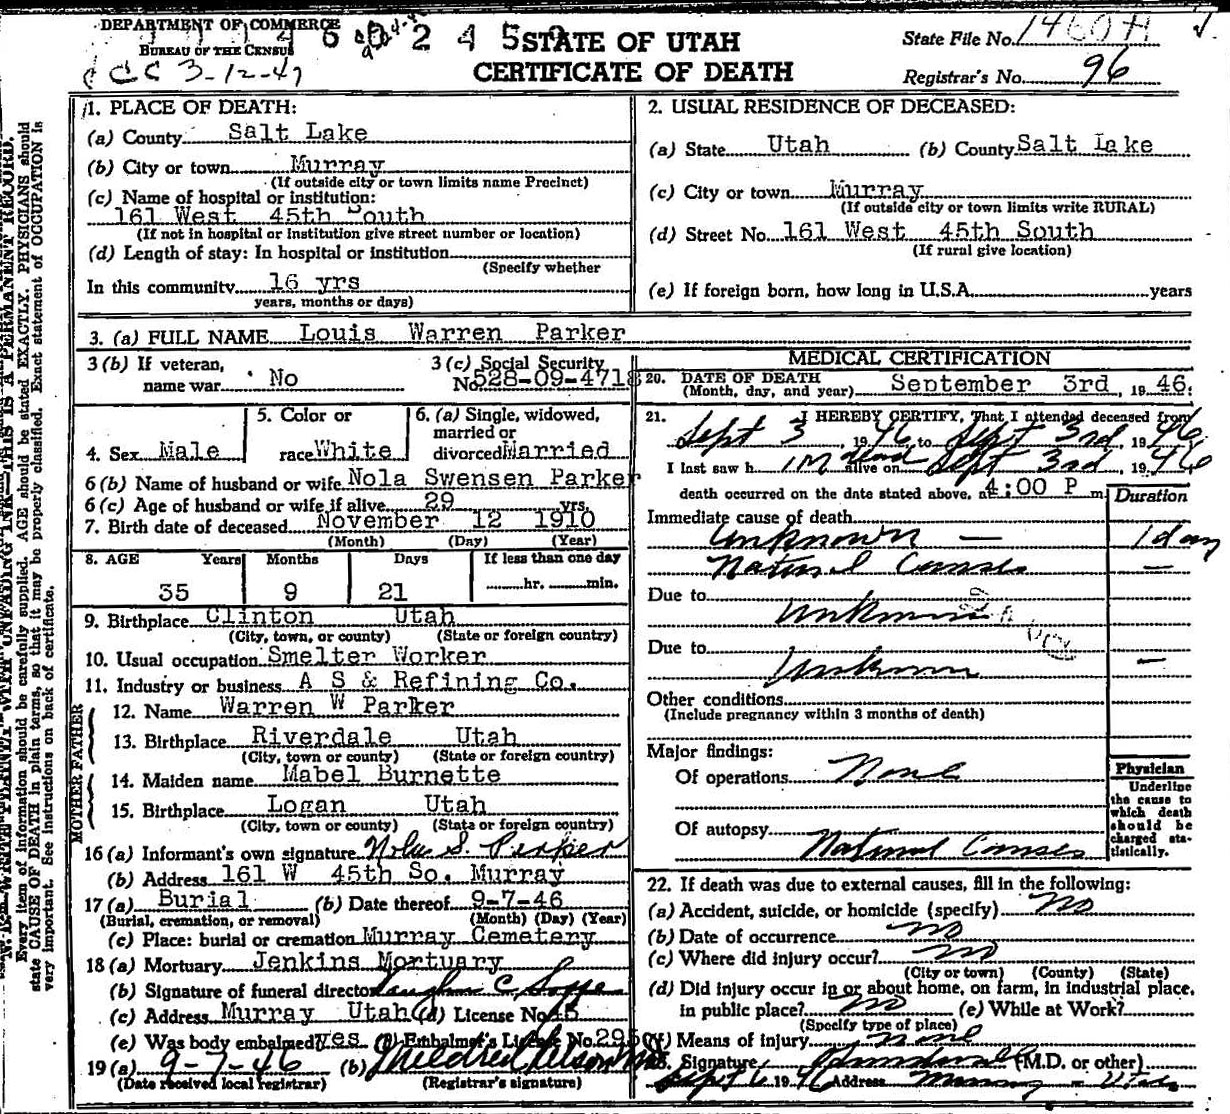 DEPARTMENT OF COMMERCE
BUREAU OF THE CENSUS
C C 3-12-47
STATE OF UTAH
CERTIFICATE OF DEATH
State File No.
Registrar's No. 96
1. PLACE OF DEATH:
(a) County Salt Lake
(b) City or town Murray
(If outside city or town limits name Precinct)
(c) Name of hospital or institution:
161 West 45th South
(If not in hospital or institution give street number or location)
(d) Length of stay: In hospital or institution
(Specify whether
In this community 16 yrs
years, months or days)
2. USUAL RESIDENCE OF DECEASED:
(a) State Utah (b) County Salt Lake
(c) City or town Murray
(If outside city or town limits write RURAL)
(d) Street No. 161 West 45th South
(If rural give location)
(e) If foreign born, how long in U.S.A. years
3. (a) FULL NAME Louis Warren Parker
3 (b) If veteran,
name war No
3 (c) Social Security
No. 528-09-4718
4. Sex Male
5. Color or
race White
6. (a) Single, widowed,
married or
divorced Married
6 (b) Name of husband or wife Nola Swensen Parker
6 (c) Age of husband or wife if alive 29 yrs.
7. Birth date of deceased November 12 1910
(Month) (Day) (Year)
8. AGE Years Months Days If less than one day
35 9 21 hr. min.
9. Birthplace Clinton Utah
(City, town, or county) (State or foreign country)
10. Usual occupation Smelter Worker
11. Industry or business A S & Refining Co.
FATHER
12. Name Warren W Parker
13. Birthplace Riverdale Utah
(City, town or county) (State or foreign country)
MOTHER
14. Maiden name Mabel Burnette
15. Birthplace Logan Utah
(City, town or county) (State or foreign country)
16 (a) Informant's own signature Nola S. Parker
(b) Address 161 W 45th So. Murray
17 (a) Burial (b) Date thereof 9-7-46
(Burial, cremation, or removal) (Month) (Day) (Year)
(c) Place: burial or cremation Murray Cemetery
18 (a) Mortuary Jenkins Mortuary
(b) Signature of funeral director
(c) Address Murray Utah (d) License No.
(e) Was body embalmed? yes (f) Embalmer's License No. 295
19 (a) 9-7-46 (b) Mildred Nelson
(Date received local registrar) (Registrar's signature)
MEDICAL CERTIFICATION
20. DATE OF DEATH
(Month, day, and year) September 3rd, 1946.
21. I HEREBY CERTIFY, That I attended deceased from
Sept 3, 1946, to Sept 3rd, 1946
I last saw him dead alive on Sept 3rd, 1946
death occurred on the date stated above, at 4:00 P m.
Duration
Immediate cause of death
Unknown — 1 day
Natural Causes —
Due to
Unknown
Due to
Unknown —
Other conditions
(Include pregnancy within 3 months of death)
Major findings:
Of operations None
Of autopsy
Natural Causes
Physician
Underline
the cause to
which death
should be
charged sta-
tistically.
22. If death was due to external causes, fill in the following:
(a) Accident, suicide, or homicide (specify) no
(b) Date of occurrence no
(c) Where did injury occur? no
(City or town) (County) (State)
(d) Did injury occur in or about home, on farm, in industrial place,
in public place? no (e) While at Work?
(Specify type of place)
(f) Means of injury none
23. Signature (M.D. or other)
Sept 6 1946 Address Murray - Utah
N. B.—WRITE PLAINLY, WITH UNFADING INK—THIS IS A PERMANENT RECORD.
Every item of information should be carefully supplied. AGE should be stated EXACTLY. PHYSICIANS should
state CAUSE OF DEATH in plain terms, so that it may be properly classified. Exact statement of OCCUPATION is
very important. See instructions on back of certificate.